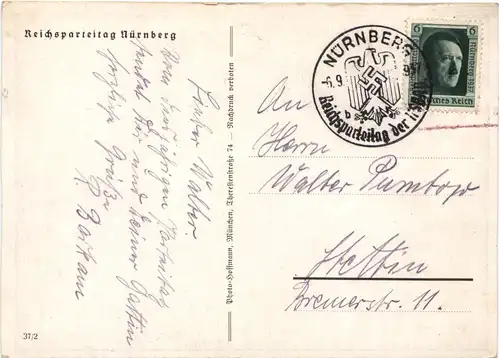 Reichsparteitag Nürnberg
Lieber Walter.
Vom diesjährigen Parteitag
sendet dir und deiner Gattin
herzliche Grüße
Photo-Hoffmann, München, Theresienstraße 74 — Nachdruck verboten
37/2
NÜRNBERG
-6.9
b
Reichsparteitag der NSDAP
6
6
Nürnberg 1937
Deutsches Reich
An
Herrn
Walter
Stettin
Bremerstr. 11.